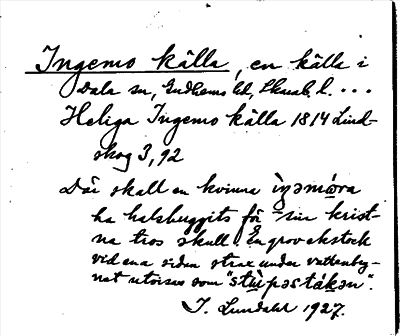 Ingemo källa, en källa i
Dala sn, Gudhems hd, Skarab. l. ...
Heliga Ingemo källa 1814 Lind-
skog 3, 92
Där skall en kvinna ìŋəmὼra
ha halshuggits för sin krist-
na tros skull. En grov ekstock
vid ena sidan strax under vattenbry-
net utvisas som "stùpəstǻkən".
J. Lundahl 1927.